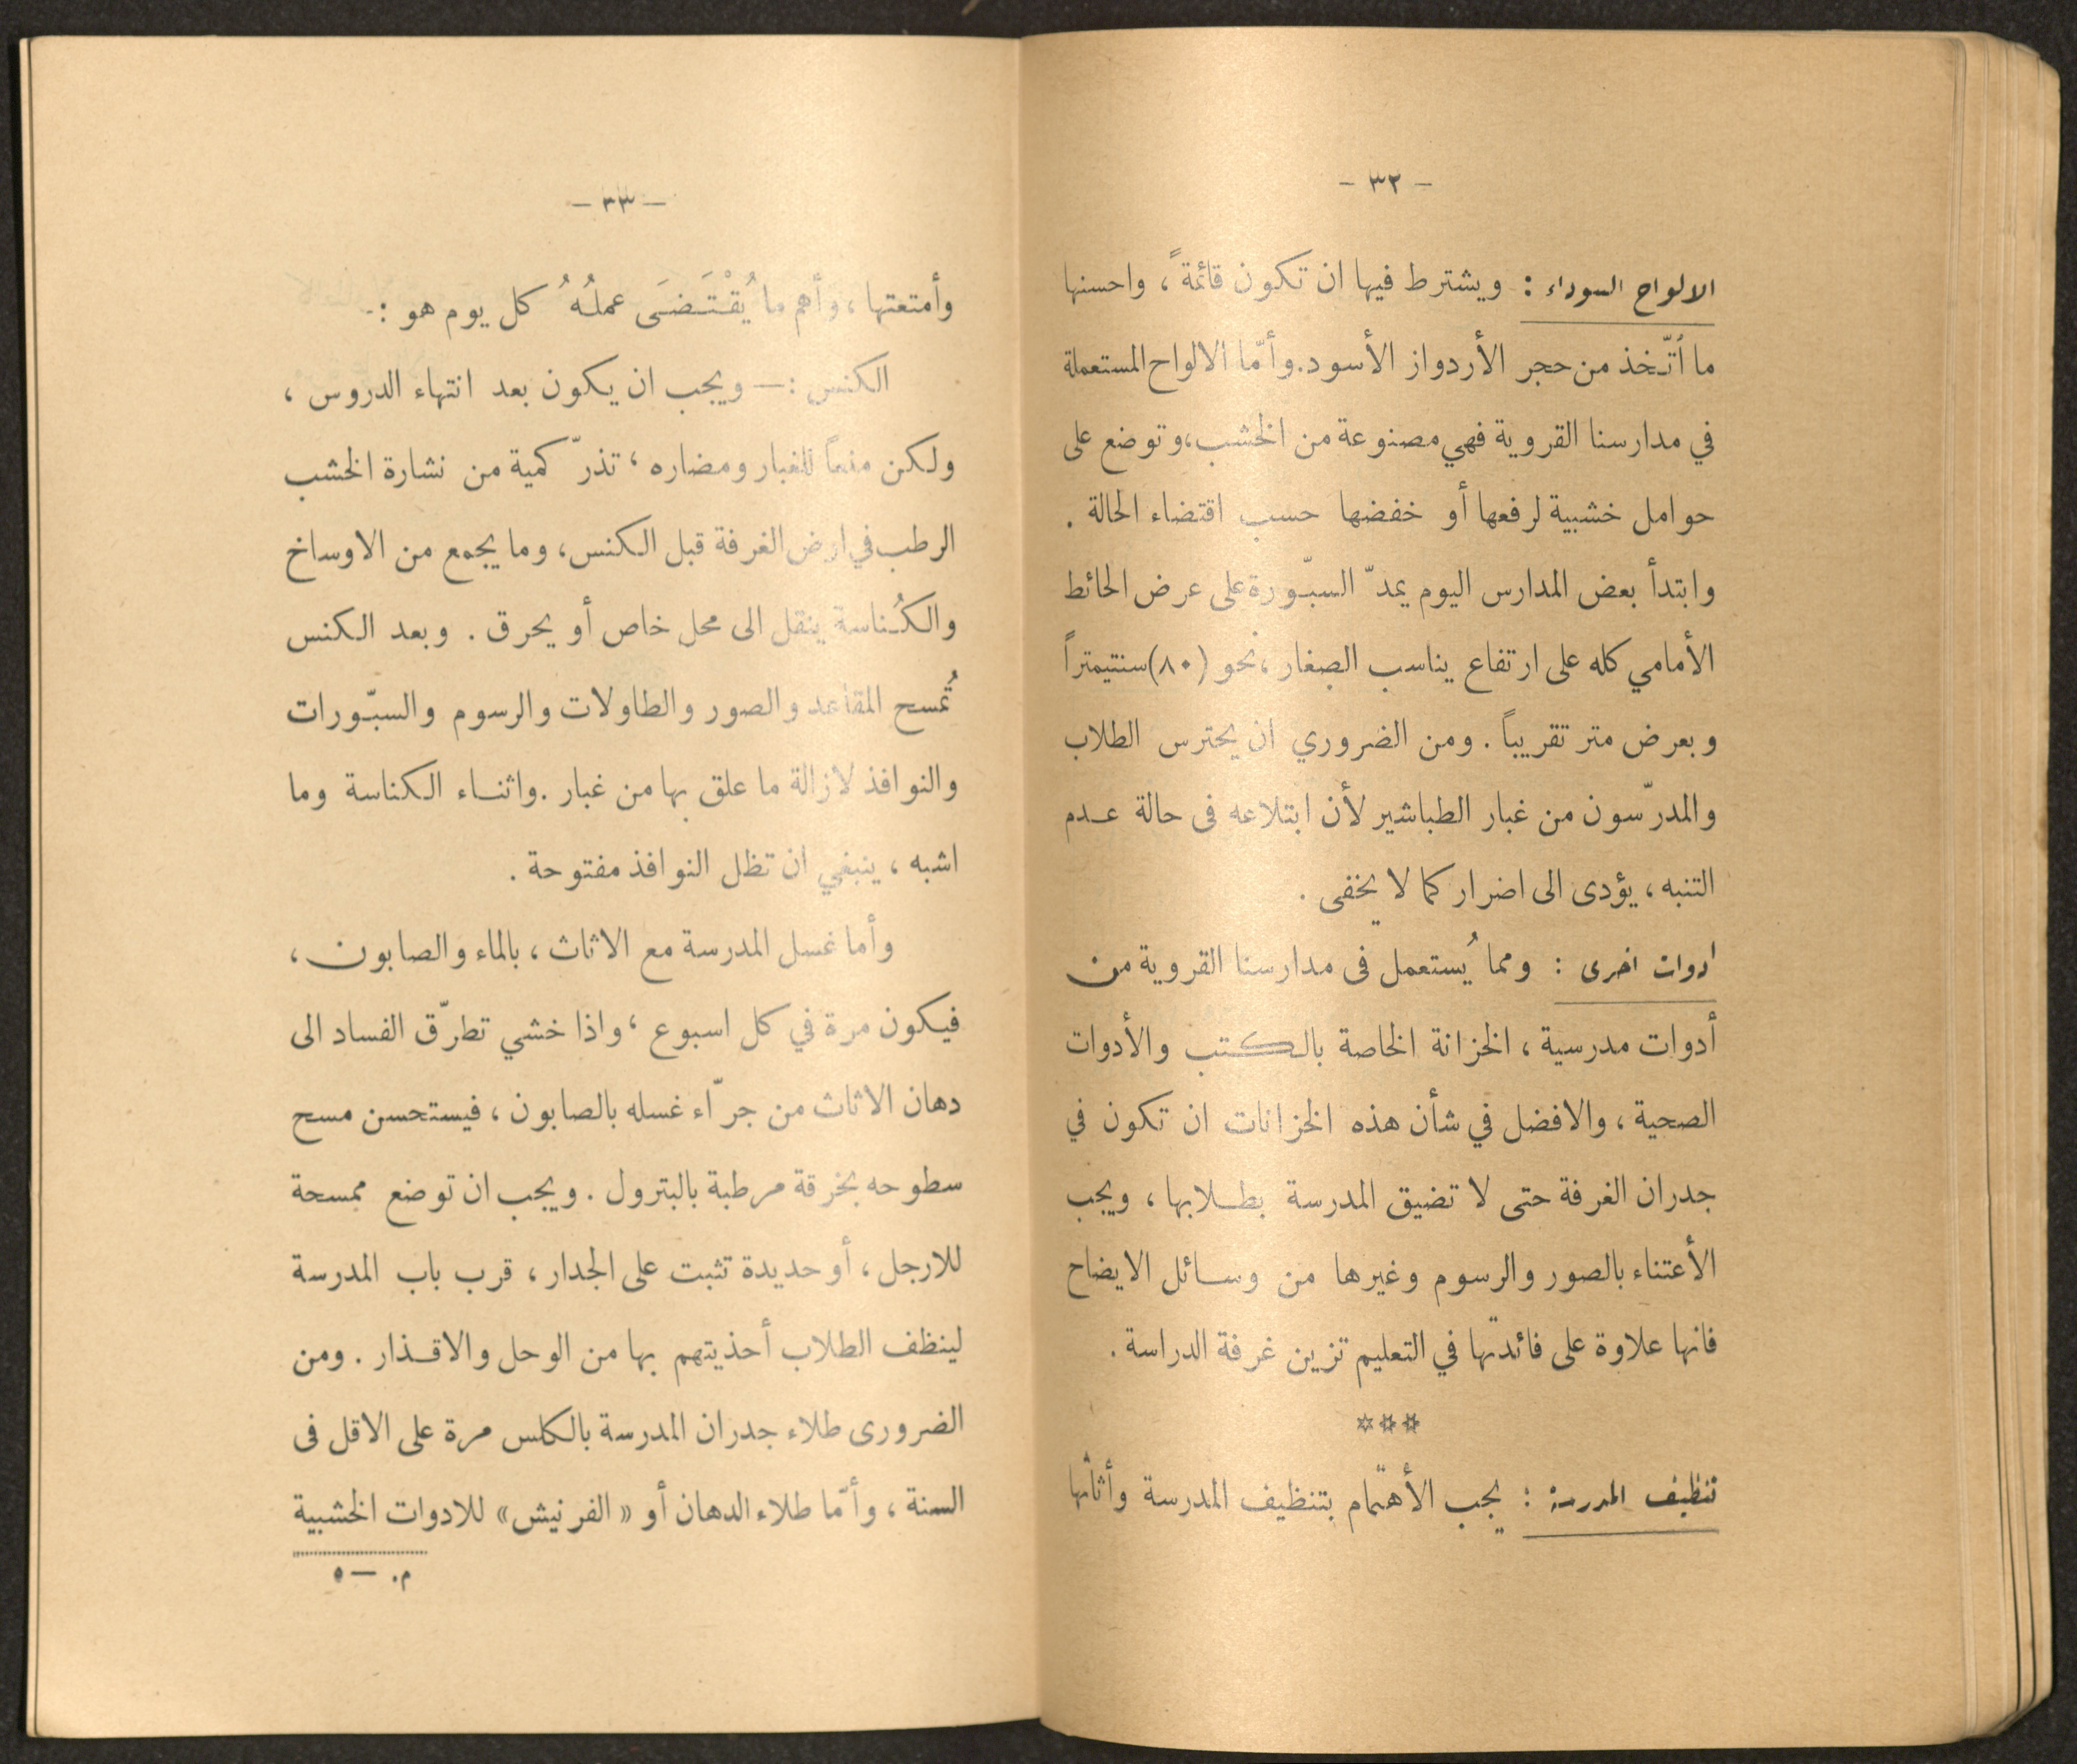 - ٣٢ -
الالواح السوداء : ويشترط فيها ان تكون قائمةً ، واحسنها
ما اُتّخذ من حجر الأردواز الأسود. وأمّا الالواح المستعملة
في مدارسنا القروية فهي مصنوعة من الخشب ، وتوضع على
حوامل خشبية لرفعها أو خفضها حسب اقتضاء الحالة .
وابتدأ بعض المدارس اليوم يمدّ السبّورة على عرض الحائط
الأمامي كله على ارتفاع يناسب الصغار ، نحو (٨٠) سنتيمتراً
وبعرض متر تقريباً . ومن الضروري ان يحترس الطلاب
والمدرّسون من غبار الطباشير لأن ابتلاعه فى حالة عـدم
التنبه ، يؤدى الى اضرار كما لا يخفى .
ادوات اخرى : ومما يُستعمل فى مدارسنا القروية من
أدوات مدرسية ، الخزانة الخاصة بالكتب والأدوات
الصحية ، والافضل في شأن هذه الخزانات ان تكون في
جدران الغرفة حتى لا تضيق المدرسة بطـلابها ، ويجب
الأعتناء بالصور والرسوم وغيرها من وسـائل الايضاح
فانها علاوة على فائدتها في التعليم تزين غرفة الدراسة .
***
تنظيف المدرسة : يجب الأهتمام بتنظيف المدرسة وأثاثها
- ٣٣ -
وأمتعتها ، وأهم ما يُقْتَـضَى عملُهُ كل يوم هو :-
الكنس : — ويجب ان يكون بعد انتهاء الدروس ،
ولكن منعاً للغبار ومضاره ، تذرّ كمية من نشارة الخشب
الرطب في ارض الغرفة قبل الكنس ، وما يجمع من الاوساخ
والكُناسة ينقل الى محل خاص أو يحرق . وبعد الكنس
تُمسح المقاعد والصور والطاولات والرسوم والسبّورات
والنوافذ لازالة ما علق بها من غبار . واثنـاء الكناسة وما
اشبه ، ينبغي ان تظل النوافذ مفتوحة .
وأما غسل المدرسة مع الاثاث ، بالماء والصابون ،
فيكون مرة في كل اسبوع ، واذا خشي تطرّق الفساد الى
دهان الاثاث من جرّاء غسله بالصابون ، فيستحسن مسح
سطوحه بخرقة مرطبة بالبترول . ويجب ان توضع ممسحة
للارجل ، أو حديدة تثبت على الجدار ، قرب باب المدرسة
لينظف الطلاب أحذيتهم بها من الوحل والاقـذار . ومن
الضرورى طلاء جدران المدرسة بالكلس مرة على الاقل فى
السنة ، وأمّا طلاء الدهان أو « الفرنيش » للادوات الخشبية
م. — ٥